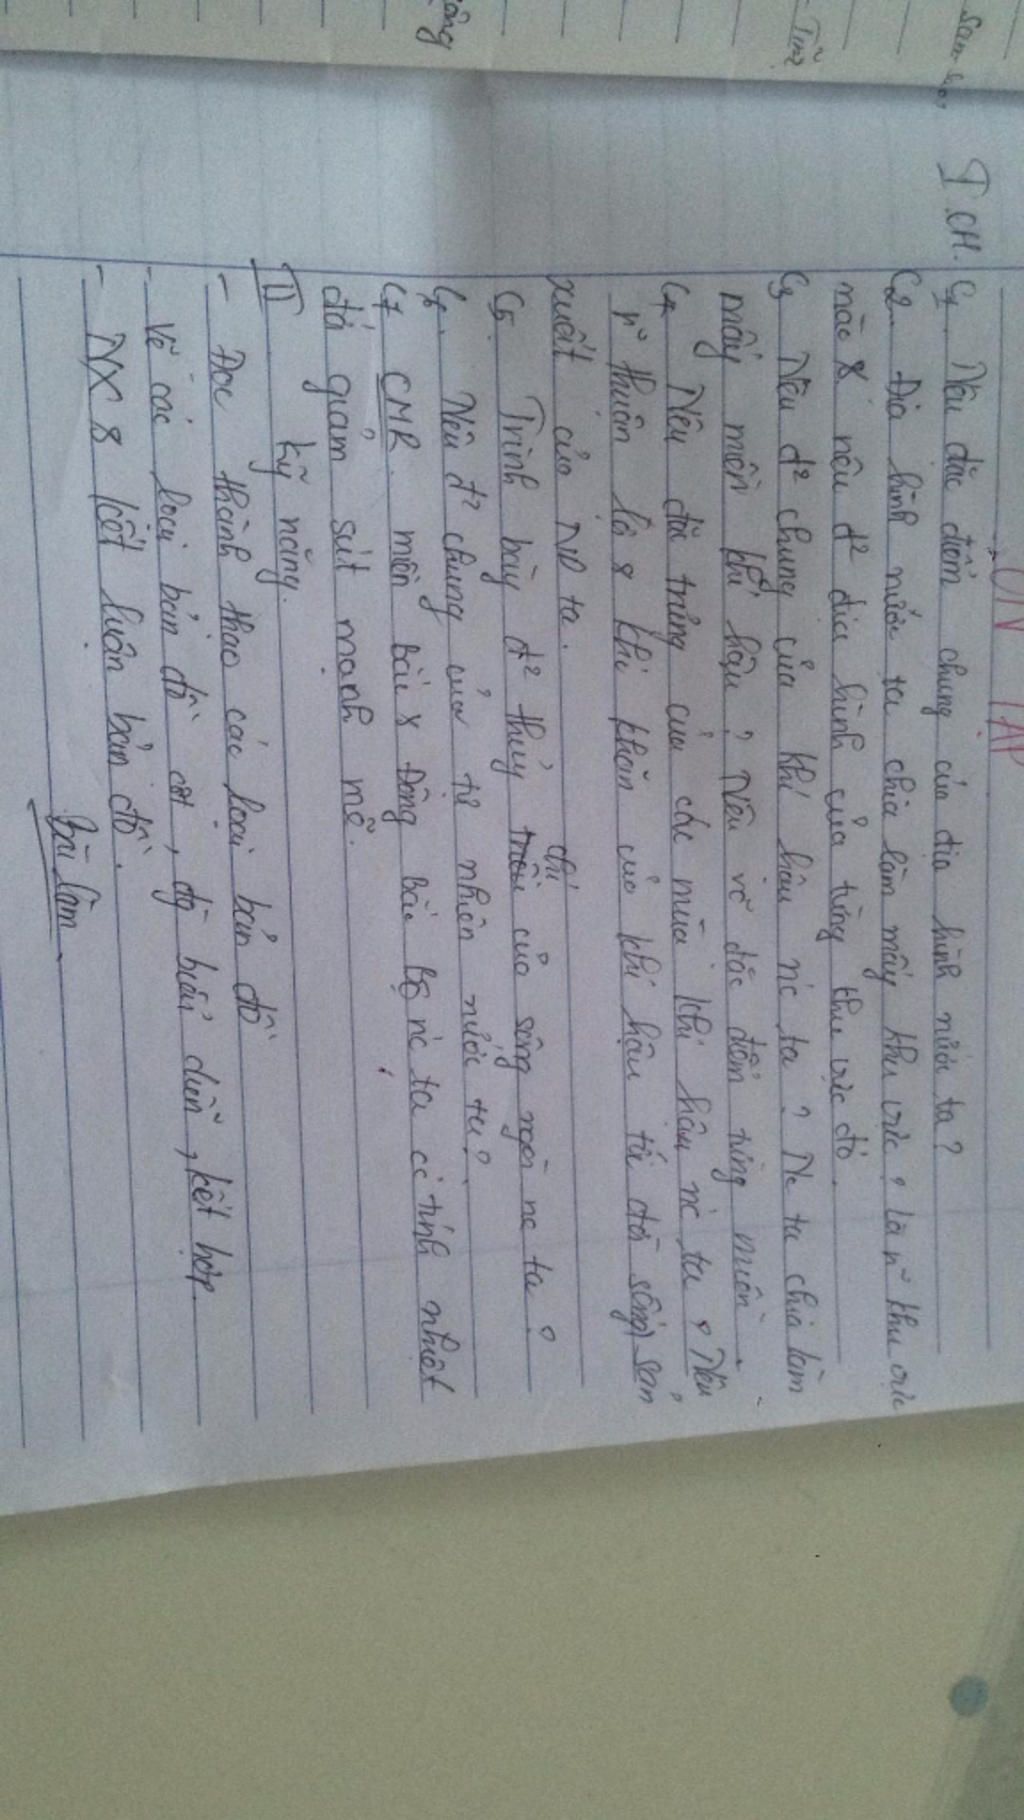 ÔN TẬP
I. CH. C1. Nêu đặc điểm chung của địa hình nước ta?
C2. Địa hình nước ta chia làm mấy khu vực? Là n~ khu vực
nào & nêu đ² địa hình của từng khu vực đó.
C3 Nêu đ² chung của khí hậu nc ta? Nc ta chia làm
mấy miền khí hậu? Nêu rõ đặc điểm từng miền.
C4 Nêu đặc trưng của các mùa khí hậu nc ta? Nêu
n~ thuận lợi & khó khăn của khí hậu tới đời sống, sản
xuất của ND ta.
C5. Trình bày đ² thủy chế của sông ngòi nc ta?
C6. Nêu đ² chung của tự nhiên nước ta?
C7 CMR. miền Bắc & Đông Bắc Bộ nc ta có tính nhiệt
đới giảm sút mạnh mẽ.
II Kỹ năng.
- Đọc thành thạo các loại bản đồ
- Vẽ các loại bản đồ cột, đg biểu diễn, kết hợp
- NX & kết luận bản đồ.
Bài làm
Tỉnh